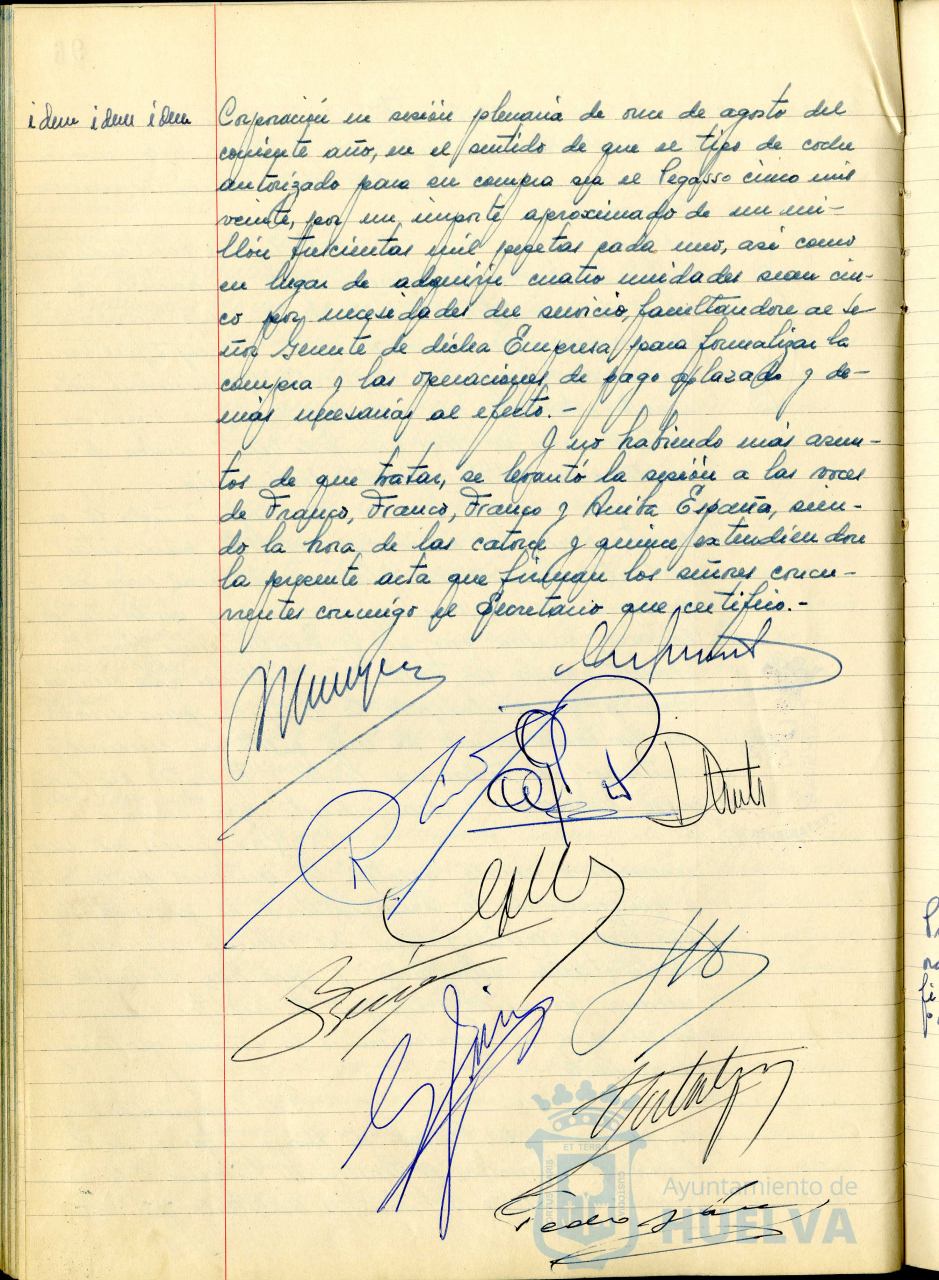 idem idem idem
Corporación en sesión plenaria de once de agosto del
corriente año, en el sentido de que el tipo de coche
autorizado para su compra sea el Pegasso cinco mil
veinte, por un importe aproximado de un mi-
llón trescientas mil pesetas cada uno, así como
en lugar de adquirir cuatro unidades sean cin-
co por necesidades del servicio, facultándose al Se-
ñor Gerente de dicha Empresa para formalizar la
compra y las operaciones de pago aplazado y de-
más necesarias al efecto.-
Y no habiendo más asun-
tos de que tratar, se levantó la sesión a las voces
de Franco, Franco, Franco y Arriba España, sien-
do la hora de las catorce y quince extendiéndose
la presente acta que firman los señores concu-
rrentes conmigo el Secretario que certifico.-
Pedro
Ayuntamiento de
HUELVA